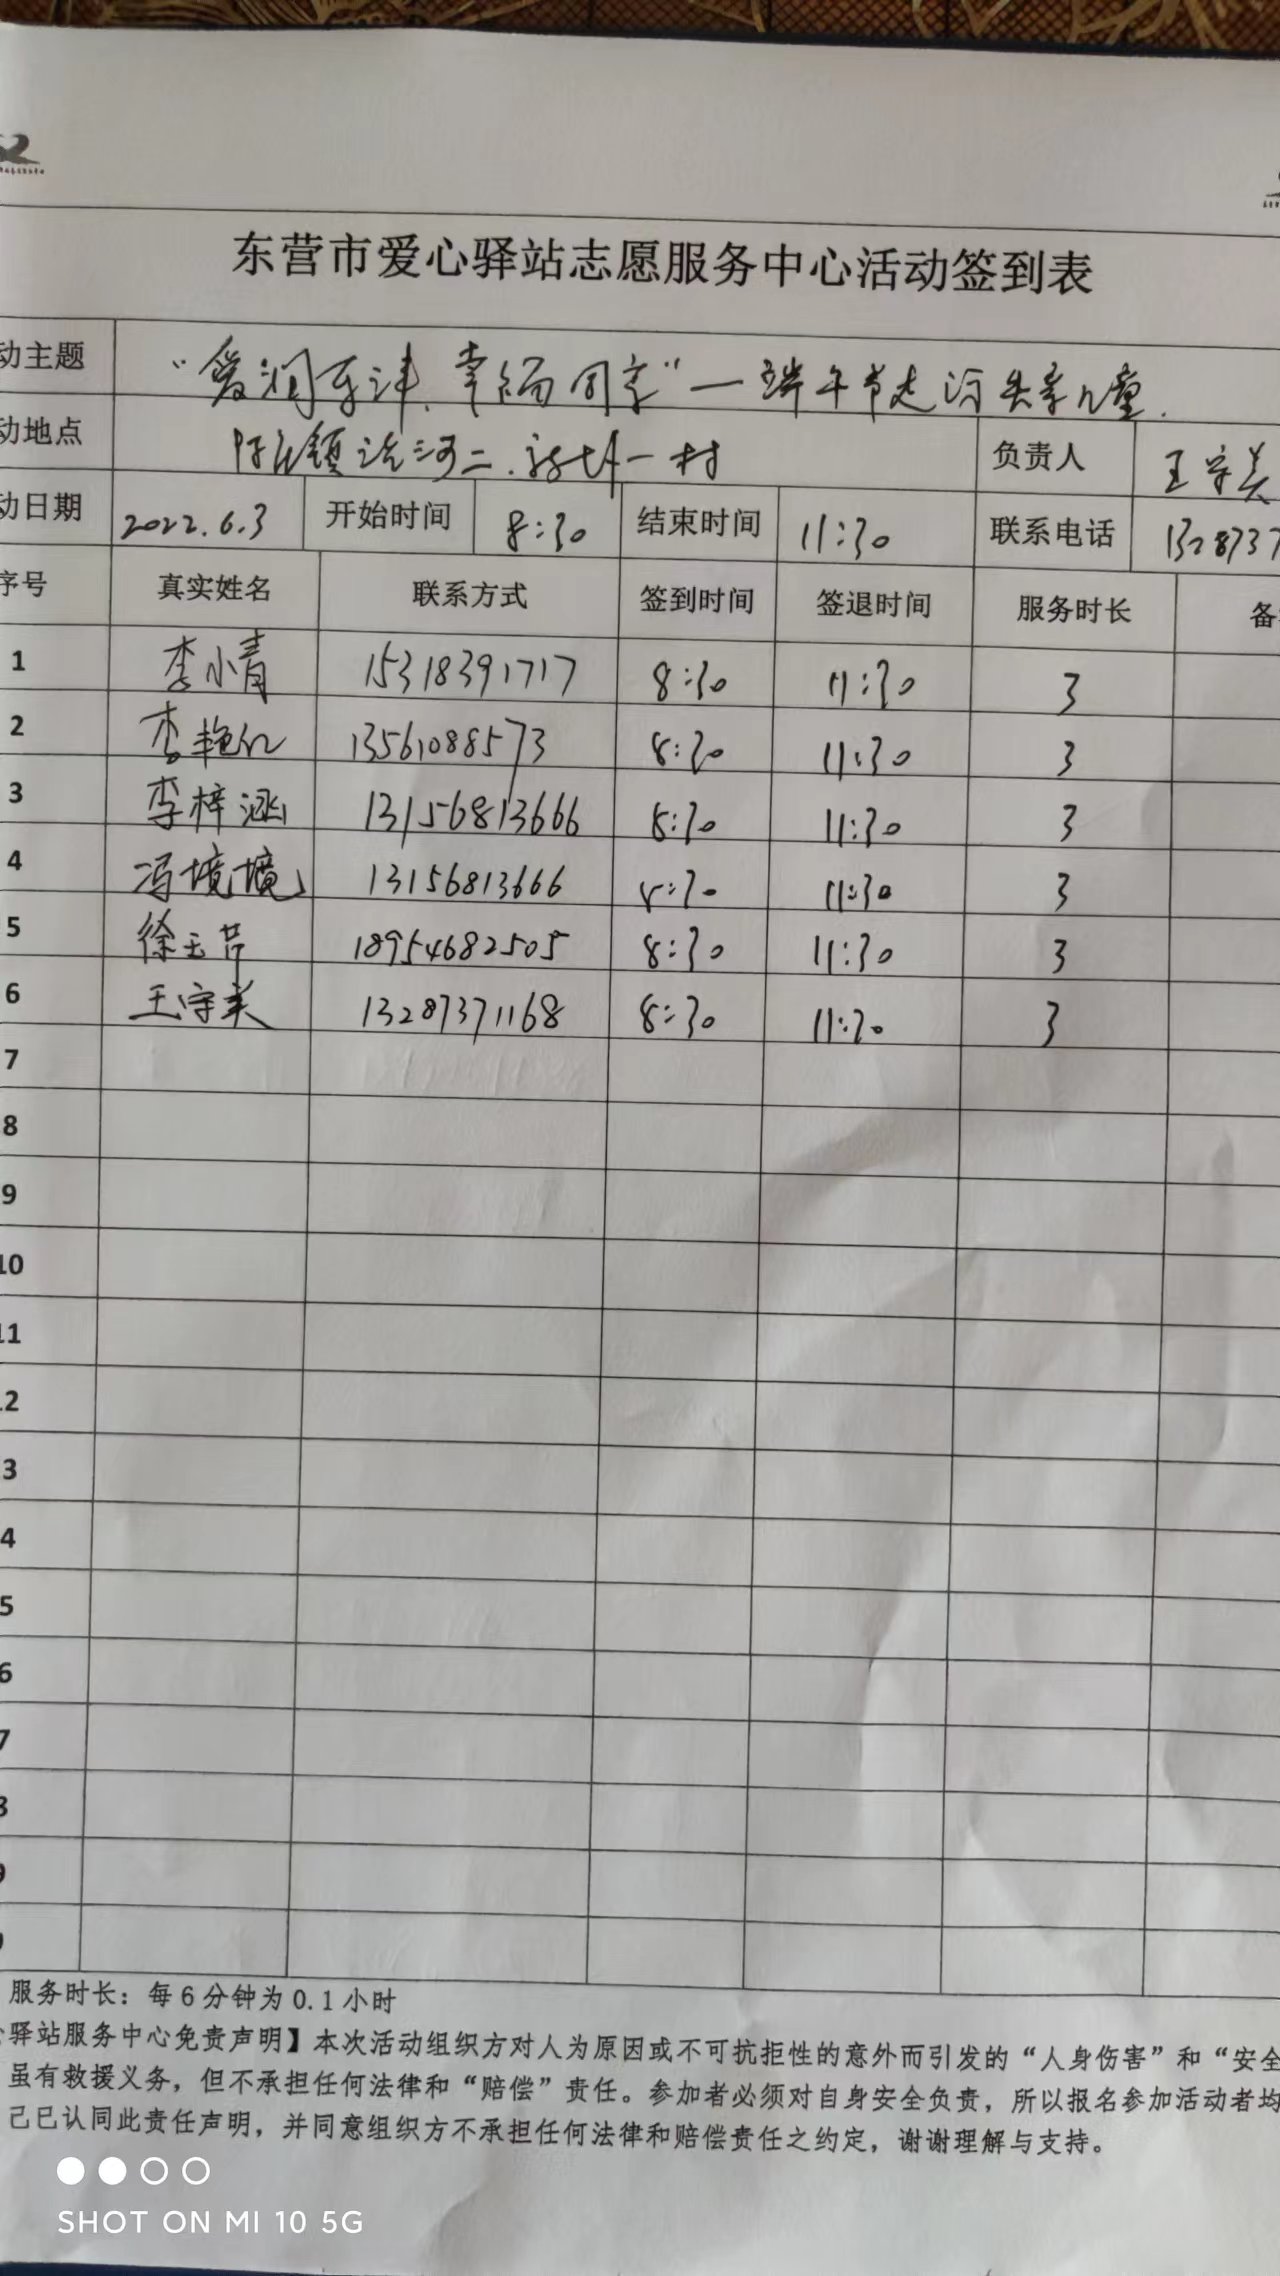 东营市爱心驿站志愿服务中心活动签到表
动主题 “爱润东津、幸福同享”—端午节走访失亲儿童.
动地点 陈庄镇 河二. 一村 负责人 王守美
动日期 2022.6.3 开始时间 8:30 结束时间 11:30 联系电话 1328737
序号 真实姓名 联系方式 签到时间 签退时间 服务时长 备
1 李小青 15318391717 8:30 11:30 3
2 李艳红 13561088573 8:30 11:30 3
3 李梓涵 13156813666 8:30 11:30 3
4 冯境境 13156813666 8:30 11:30 3
5 徐玉芹 18954682505 8:30 11:30 3
6 王守美 13287371168 8:30 11:30 3
7
8
9
10
11
12
3
4
5
6
7
8
9
服务时长：每6分钟为0.1小时
驿站服务中心免责声明】本次活动组织方对人为原因或不可抗拒性的意外而引发的“人身伤害”和“安全
虽有救援义务，但不承担任何法律和“赔偿”责任。参加者必须对自身安全负责，所以报名参加活动者均
己已认同此责任声明，并同意组织方不承担任何法律和赔偿责任之约定，谢谢理解与支持。
SHOT ON MI 10 5G